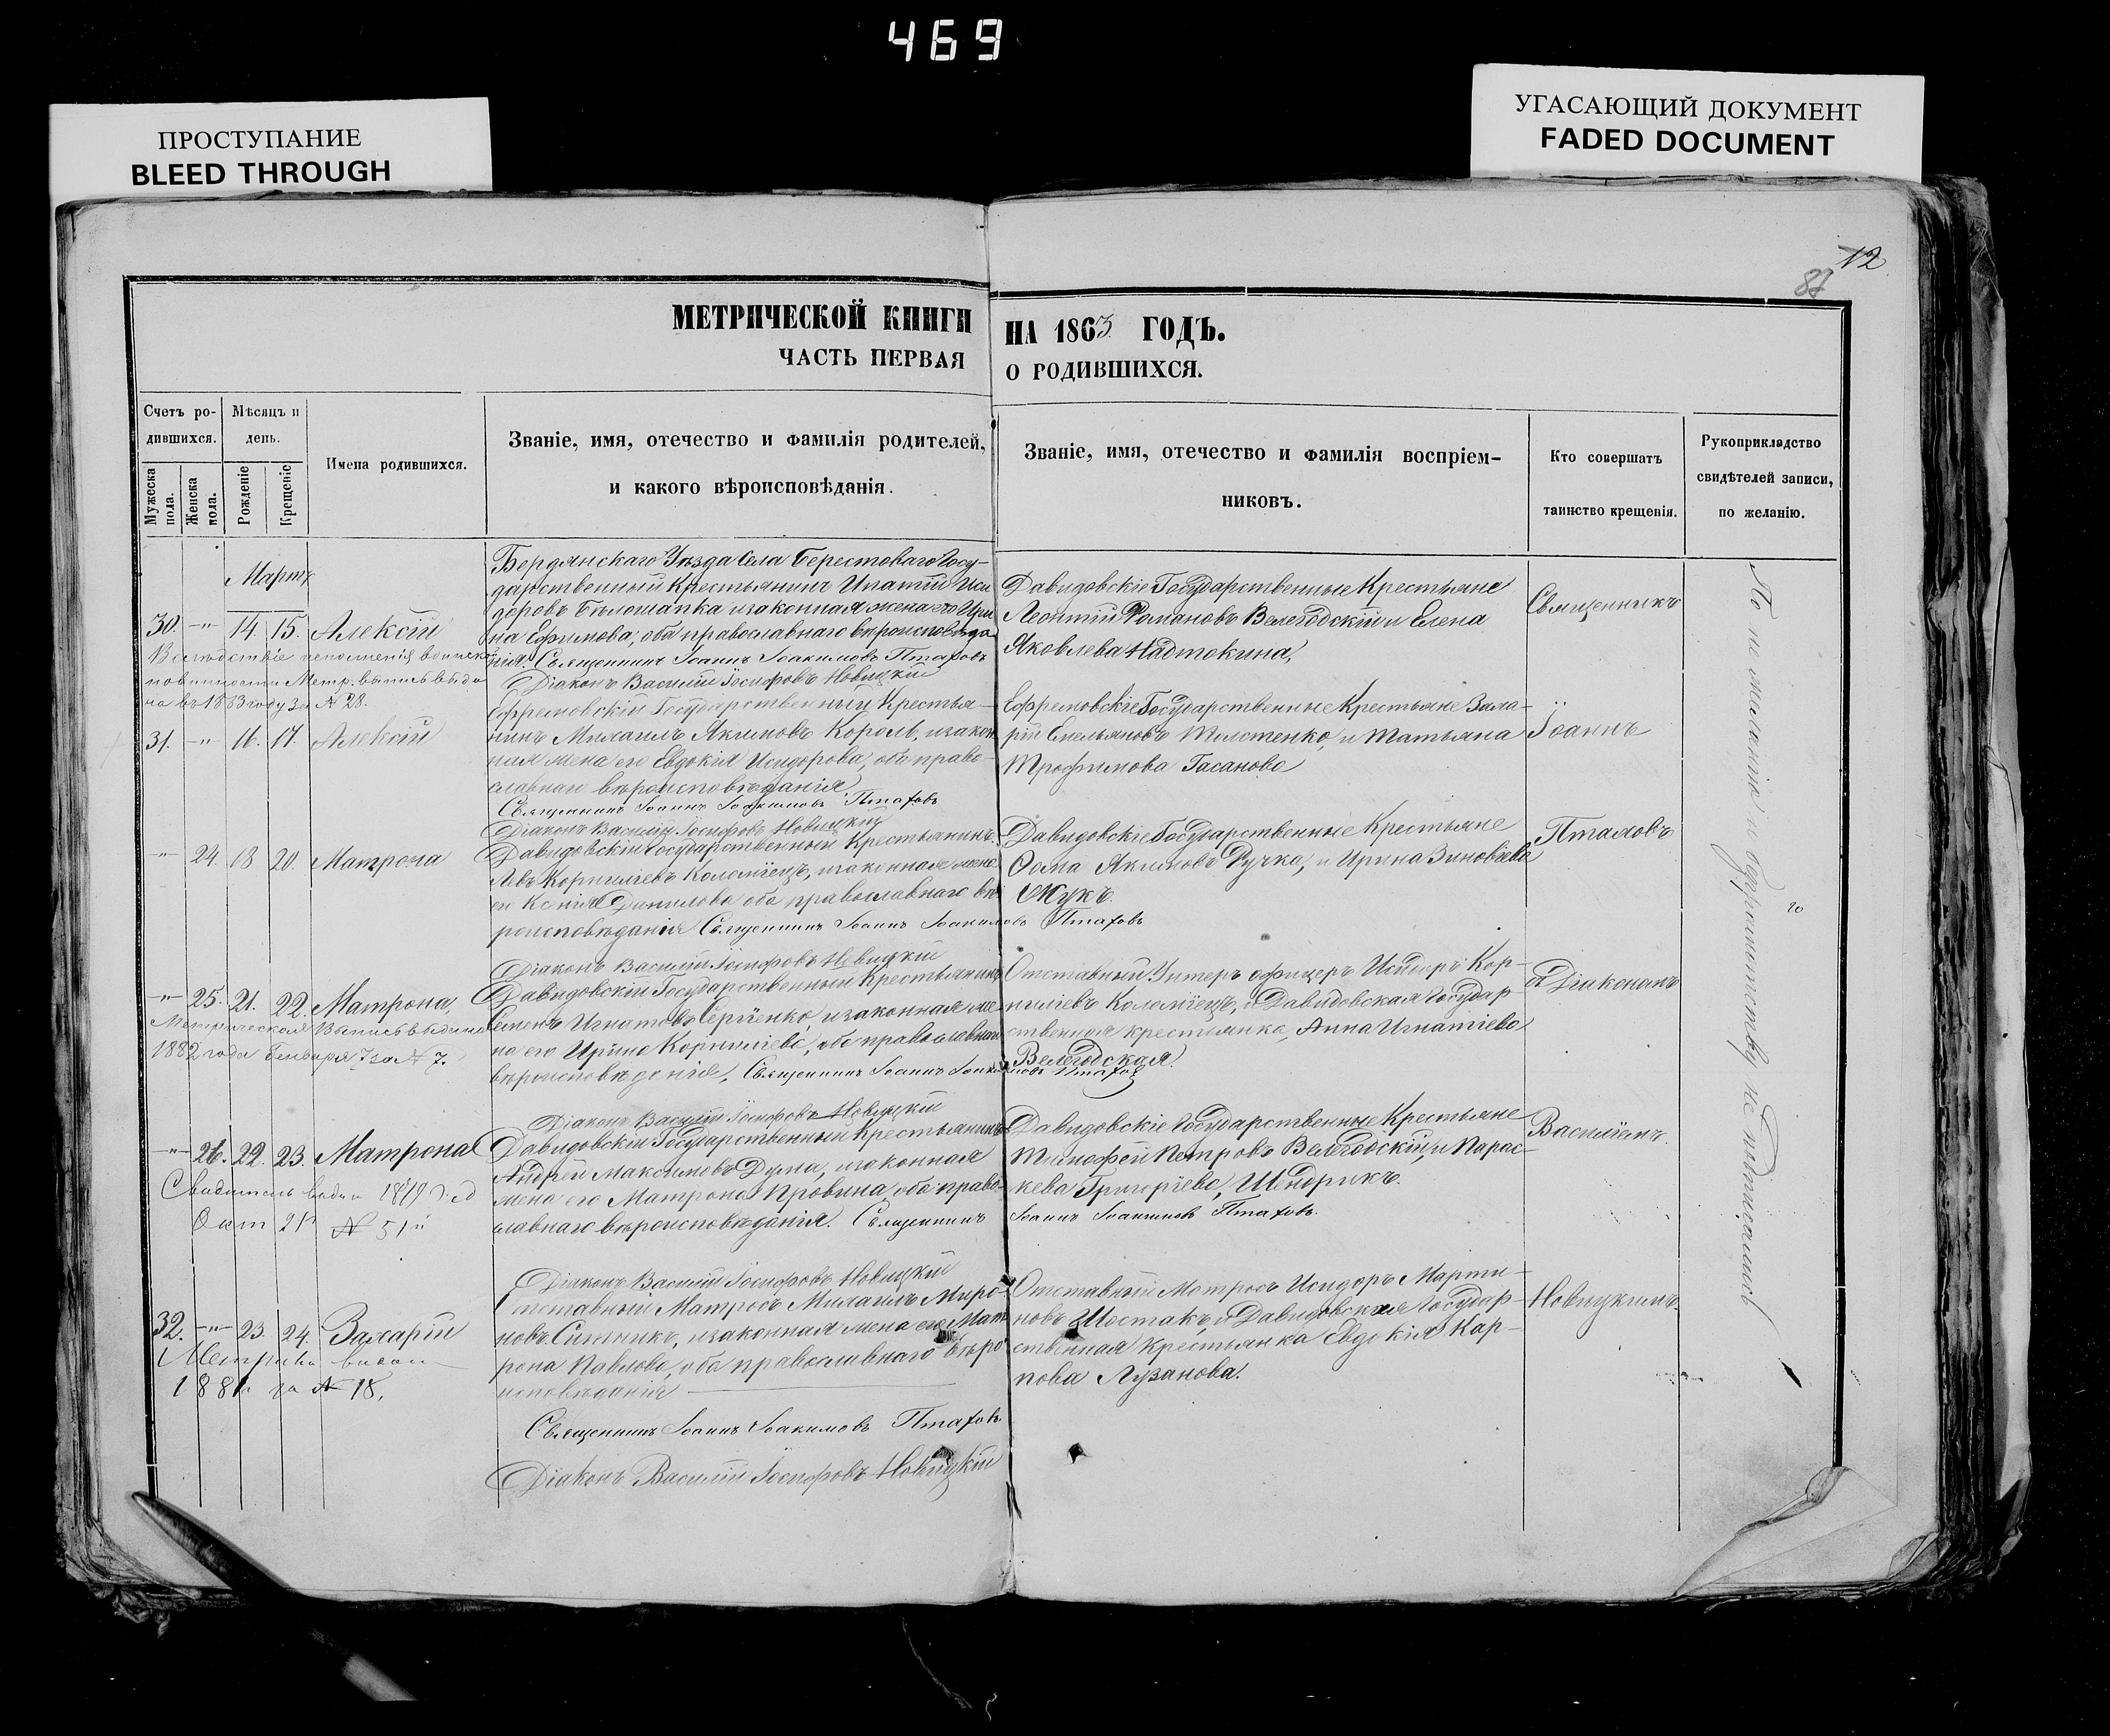 469
ПРОСТУПАНИЕ
BLEED THROUGH
УГАСАЮЩИЙ ДОКУМЕНТ
FADED DOCUMENT
12
87
МЕТРИЧЕСКОЙ КНИГИ НА 1863 ГОДЪ.
ЧАСТЬ ПЕРВАЯ О РОДИВШИХСЯ.
Счетъ ро-
дившихся.
Мужеска пола.
Женска пола.
Мѣсяцъ и
день.
Рожденіе
Крещеніе
Имена родившихся.
Званіе, имя, отечество и фамилія родителей,
и какого вѣроисповѣданія.
Званіе, имя, отечество и фамилія воспріем-
никовъ.
Кто совершатъ
таинство крещенія.
Рукоприкладство
свидѣтелей записи,
по желанію.
Мартъ
30. -"- 14. 15. Алексій
Бердянскаго Уѣзда Села Берестоваго Госу-
дарственный Крестьянинъ Ипатій Иси
доровъ Бѣлошапка изаконная жена его Ири
на Ефимова, оба православнаго вѣроисповѣда
нія. Священникъ Іоаннъ Іоакимовъ Птаховъ
Діаконъ Василій Іосифовъ Новицкій
Давидовскіе Государственные Крестьяне
Леонтій Романовъ Велегодскій и Елена
Яковлева Надтокина,
Священникъ
повинности Метр. выпись выда
на въ 1883 году за № 28.
31. -"- 16. 17. Алексій
Ефремовскій Государственный Крестья-
нинъ Михаилъ Акимовъ Король, изакон
ная жена его Евдокія Исидорова, оба право-
славнаго вѣроисповѣданія
Священникъ Іоаннъ Іоакимовъ Птаховъ
Діаконъ Василій Іосифовъ Новицкій
Ефремовскіе Государственные Крестьяне
рій Емельяновъ Толстенко, и Татьяна
Трофимова Гасанова
Іоаннъ
-"- 24. 18 20. Матрона
Давидовскій Государственный Крестьянинъ
Левъ Корнилиевъ Коломіецъ, изаконная жена
его Ксенія Данилова оба православнаго вѣ
роисповѣданія Священникъ Іоаннъ Іоакимовъ Птаховъ
Діаконъ Василій Іосифовъ Новицкій
Давидовскіе Государственные Крестьяне
Фома Акимовъ Ручка, и Ирина Зиновіева
Жукъ.
Птаховъ
-"- 25. 21. 22. Матрона,
Метрическая Выпись выдана
1882 года Генваря 7 за № 7.
Давидовскій Государственный Крестьянинъ
Семенъ Игнатовъ Сергіенко, изаконная же
на его Ирина Корнилиева, оба православнаго
вѣроисповѣданія, Священникъ Іоаннъ Іоакимовъ Птаховъ
Діаконъ Василій Іосифовъ Новицкій
Отставный Унтеръ офицеръ Исидоръ Кор-
нилиевъ Коломіецъ, и Давидовская Государ
ственная крестьянка, Анна Игнатіева
Велегодская.
съ Діакономъ
-"- 26. 22. 23. Матрона
№ 51й
Давидовскій Государственный Крестьянинъ
Андрей Максимовъ Дума, изаконная
жена его Матрона Провина, оба право-
славнаго вѣроисповѣданія. Священникъ
Іоаннъ Іоакимовъ Птаховъ.
Діаконъ Василій Іосифовъ Новицкій
Давидовскіе Государственные Крестьяне
Тимофей Петровъ Велегодскій, и Парас-
кева Григоріева, Шендрикъ.
Василіемъ
32. -"- 23. 24. Захарій
Метрика выдан
1881 за № 18.
Отставный Матросъ Михаилъ Миро-
новъ Ситникъ, изаконная жена его Мат
рона Павлова, оба православнаго вѣро
исповѣданія
Священникъ Іоаннъ Іоакимовъ Птаховъ
Діаконъ Василій Іосифовъ Новицкій
Отставный Матросъ Исидоръ Марти-
новъ Шостакъ, и Давидовская Государ-
ственная крестьянка Евдокія Кар-
пова Лузанова.
Новицкимъ
По и желанію и неграмотству не подписались